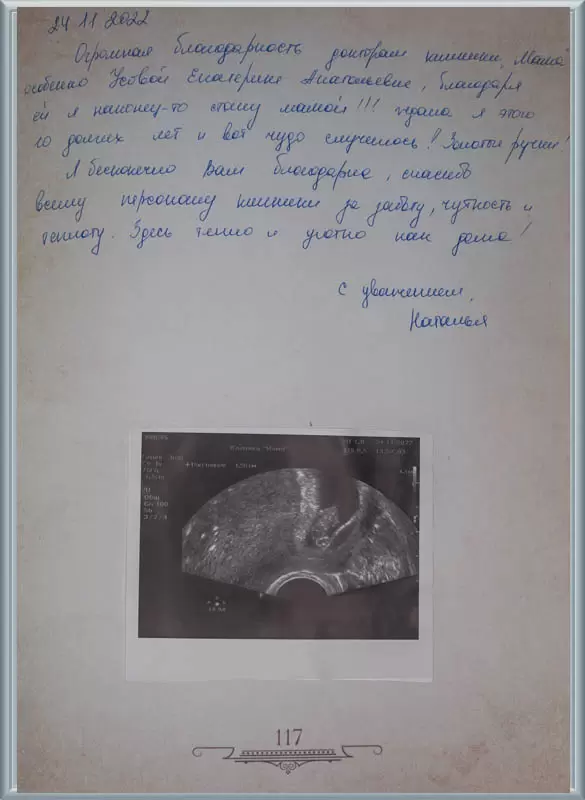 24 11 2022
Огромная благодарность докторам клиники "Мама"
особенно Усовой Екатерине Анатольевне, благодаря
ей я наконец-то стану мамой!!! Ждала я этого
10 долгих лет и вот чудо случилось! Золотые ручки!
Я бесконечно Вам благодарна, спасибо
всему персоналу клиники за заботу, чуткость и
теплоту. Здесь тепло и уютно как дома!
С уважением,
Наталья
Клиника "Мама"
117